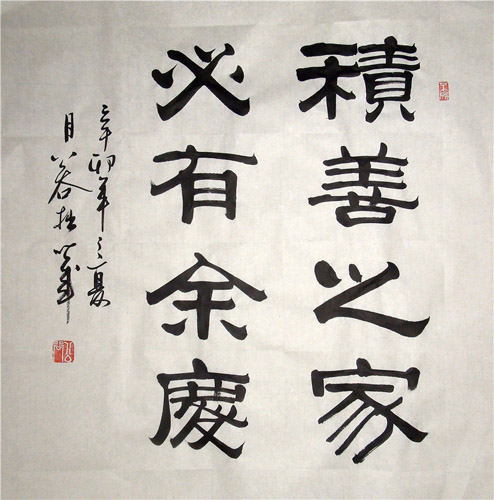 積善之家
必有余慶
辛卯年之夏
月若拙筆